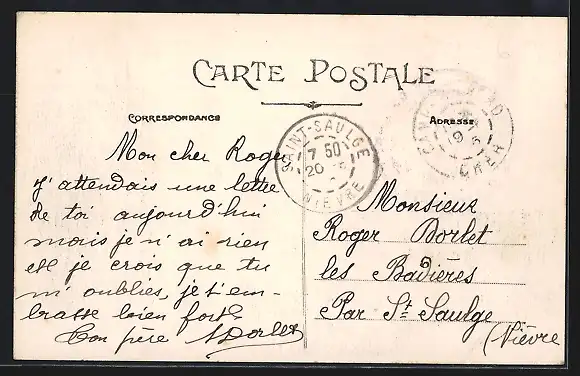 CARTE POSTALE
CORRESPONDANCE
ADRESSE
SAINT-SAULGE
7 50
20
NIEVRE
CHER
Mon cher Roger
J'attendais une lettre
de toi aujourd'hui
mais je n'ai rien
et je crois que tu
m'oublies, je t'em-
brasse bien fort
Ton père Dorlet
Monsieur
Roger Dorlet
les Badières
Par St Saulge
(Nièvre